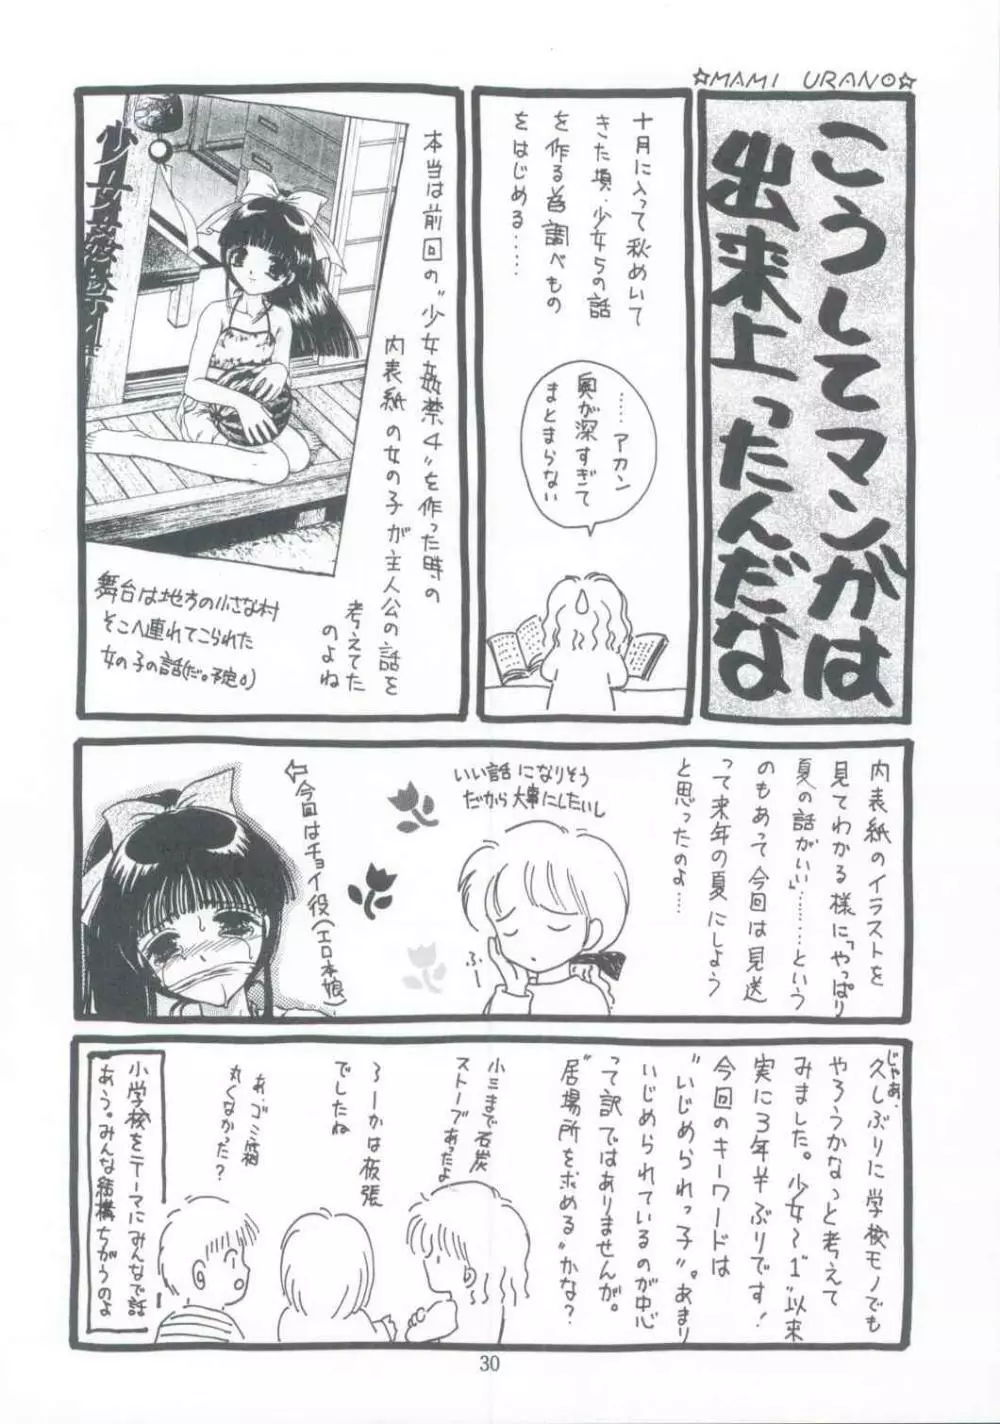 ☆MAMI URANO☆
こうしてマンガは
出来上ったんだな
十月に入って秋めいて
きた頃、少女らの話
を作る為調べもの
をはじめる……
……アカン
奥が深すぎて
まとまらない
本当は前回の"少女姦禁4"を作った時の
内表紙の女の子が主人公の話を
考えてた
のよね
舞台は地方の小さな村
そこへ連れてこられた
女の子の話(だ。予定。)
内表紙のイラストを
見てわかる様に「やっぱり
夏の話がいい」………という
のもあって今回は見送
って来年の夏にしよう
と思ったのよ……
いい話になりそう
だから大事にしたいし
ふー
←今回はチョイ役(エロ本娘)
じゃあ、
久しぶりに学校モノでも
やろうかなっと考えて
みました。少女〜"1"以来
実に3年半ぶりです!
今回のキーワードは
"いじめられっ子"。あまり
いじめられているのが中心
って訳ではありませんが。
"居場所を求める"かな?
小三まで石炭
ストーブあったよ
ろーかは板張
でしたね
あ、ゴミ箱
丸くなかった?
小学校をテーマにみんなで話
あう。みんな結構ちがうのよ
30